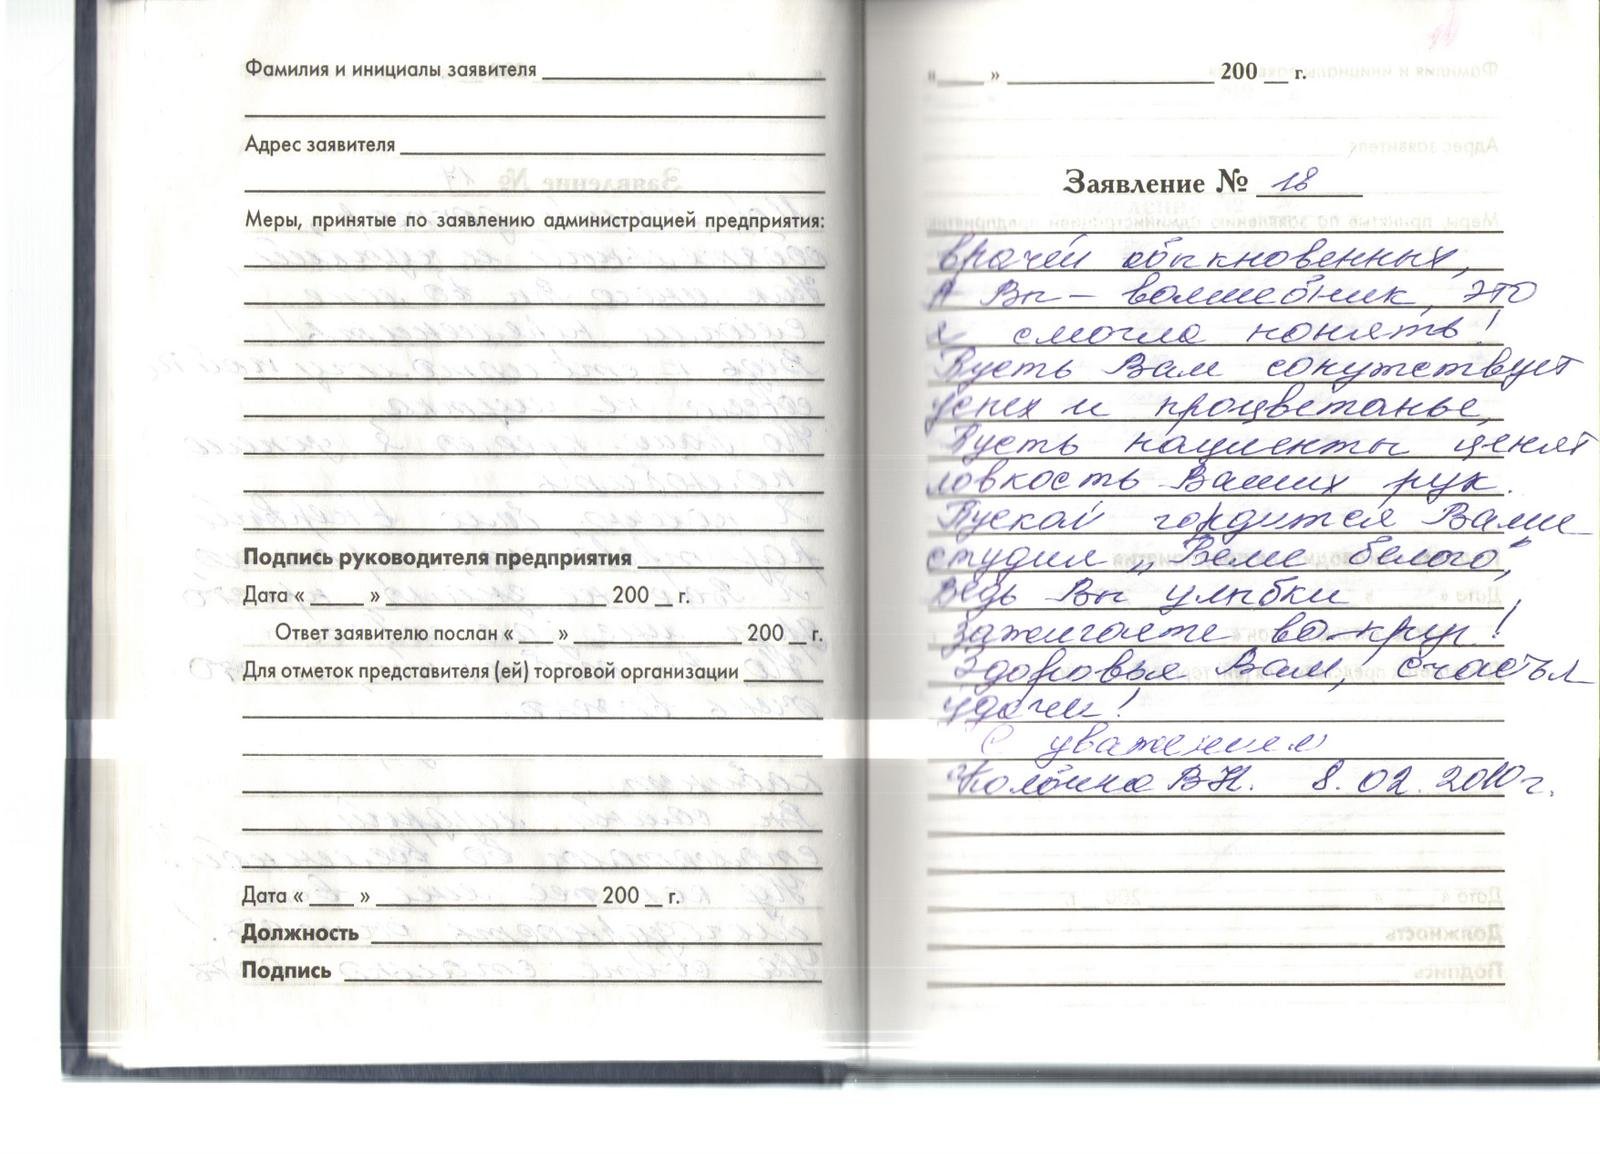 Фамилия и инициалы заявителя
Адрес заявителя
Меры, принятые по заявлению администрацией предприятия:
Подпись руководителя предприятия
Дата « » 200 г.
Ответ заявителю послан « » 200 г.
Для отметок представителя (ей) торговой организации
Дата « » 200 г.
Должность
Подпись
« » 200 г.
Заявление № 18
врачей обыкновенных,
А Вы – волшебник, это
я смогла понять!
Пусть Вам сопутствует
успех и процветанье,
Пусть пациенты ценят
ловкость Ваших рук.
Пускай гордится Вами
студия „Белее белого",
Ведь Вы улыбки
зажигаете вокруг!
Здоровья Вам, счастья
удачи!
С уважением
В.Н. 8.02.2010г.